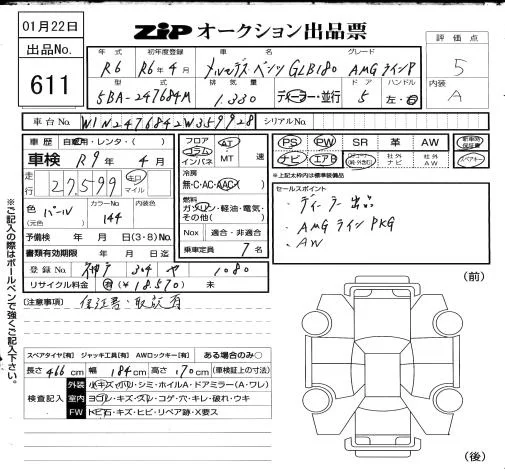 01月22日
ZIP オークション出品票
出品No.
611
評価点
5
内装
A
年式 初年度登録 車名 グレード
R6 R6年4月 メルセデス・ベンツ GLB180 AMGラインP
型式 排気量 ドア ハンドル
5BA-247684M 1.330 ディーラー・並行 5 左・右
車台No. W1N2476842W359928 シリアルNo.
車歴 自家用・レンタ・( )
車検 R9年4月
走行 27,599 キロ マイル
色 パール (元色) カラーNo. 144 内装色
予備検 年 月 日(3・8)No.
書類有効期限 年 月 日迄
登録No. 神戸 304 や 1080
リサイクル料金 有(¥18,570) 未
フロア コラム インパネ AT MT 速
冷房 無・C・AC・AAC
燃料 ガソリン・軽油・電気・その他( )
Nox 適合・非適合
乗車定員 7名
PS PW SR 革 AW 新車時保証書
ナビ エアB 社外ナビ 社外AW 取スペアキー
*上記太枠内は標準装備品
セールスポイント
・ディーラー出品
・AMGラインPKG
・AW
[注意事項] 保証書・取説有
スペアタイヤ[有] ジャッキ工具[有] AWロックキー[有] ある場合のみ〇
長さ466cm 幅184cm 高さ170cm(車検証上の寸法)
検査記入
外装 小キズ・凹リ・シミ・ホイルA・ドアミラー(A・ワレ)
室内 ヨゴレ・キズ・スレ・コゲ・穴・キレ・破れ・ウキ
FW トビ石・キズ・ヒビ・リペア跡・X要ス
(前)
(後)
※ご記入の際はボールペンで強くご記入下さい。